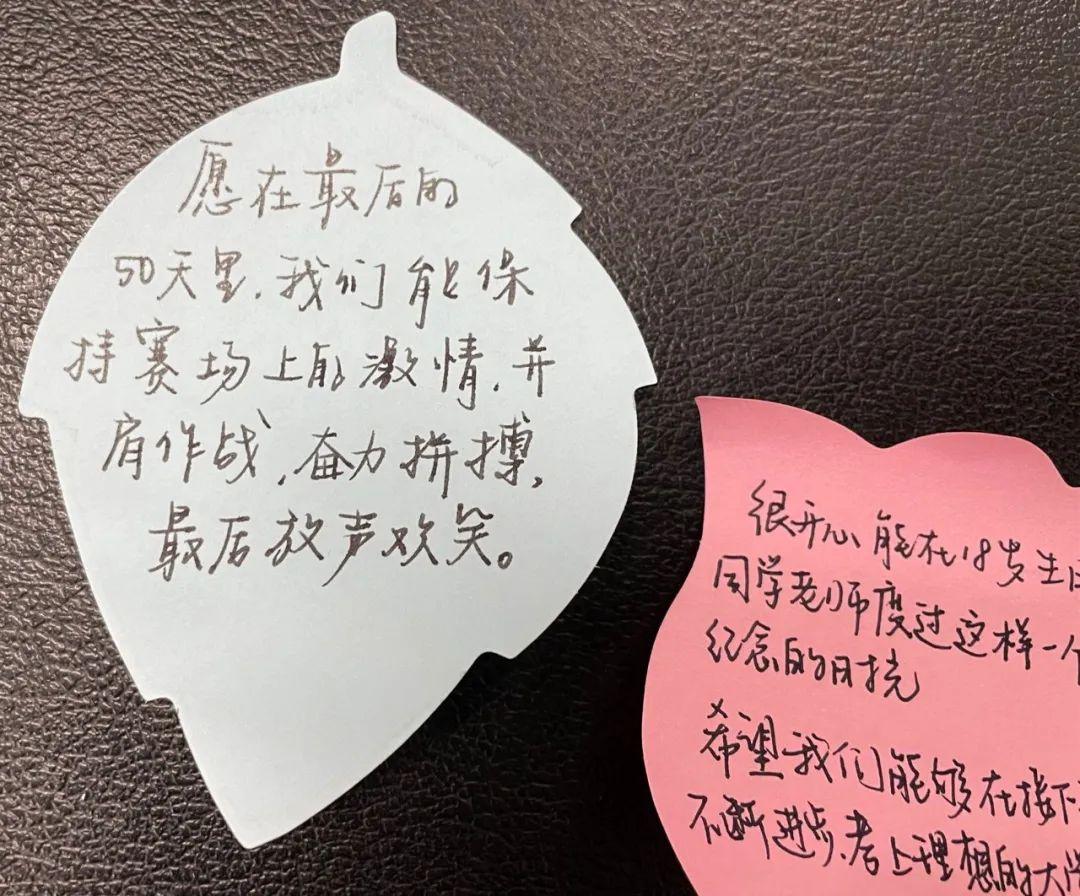 愿在最后的
50天里,我们能保
持赛场上的激情,并
肩作战,奋力拼搏,
最后放声欢笑。
很开心能在18岁生
同学老师度过这样一个
纪念的时
希望我们能够在接下
不断进步,考上理想的大学